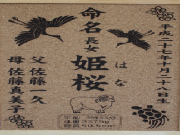 平成二十七年十月二十八日生
命名
長女
姫桜
はな
父 佐藤 久
母 佐藤真美子